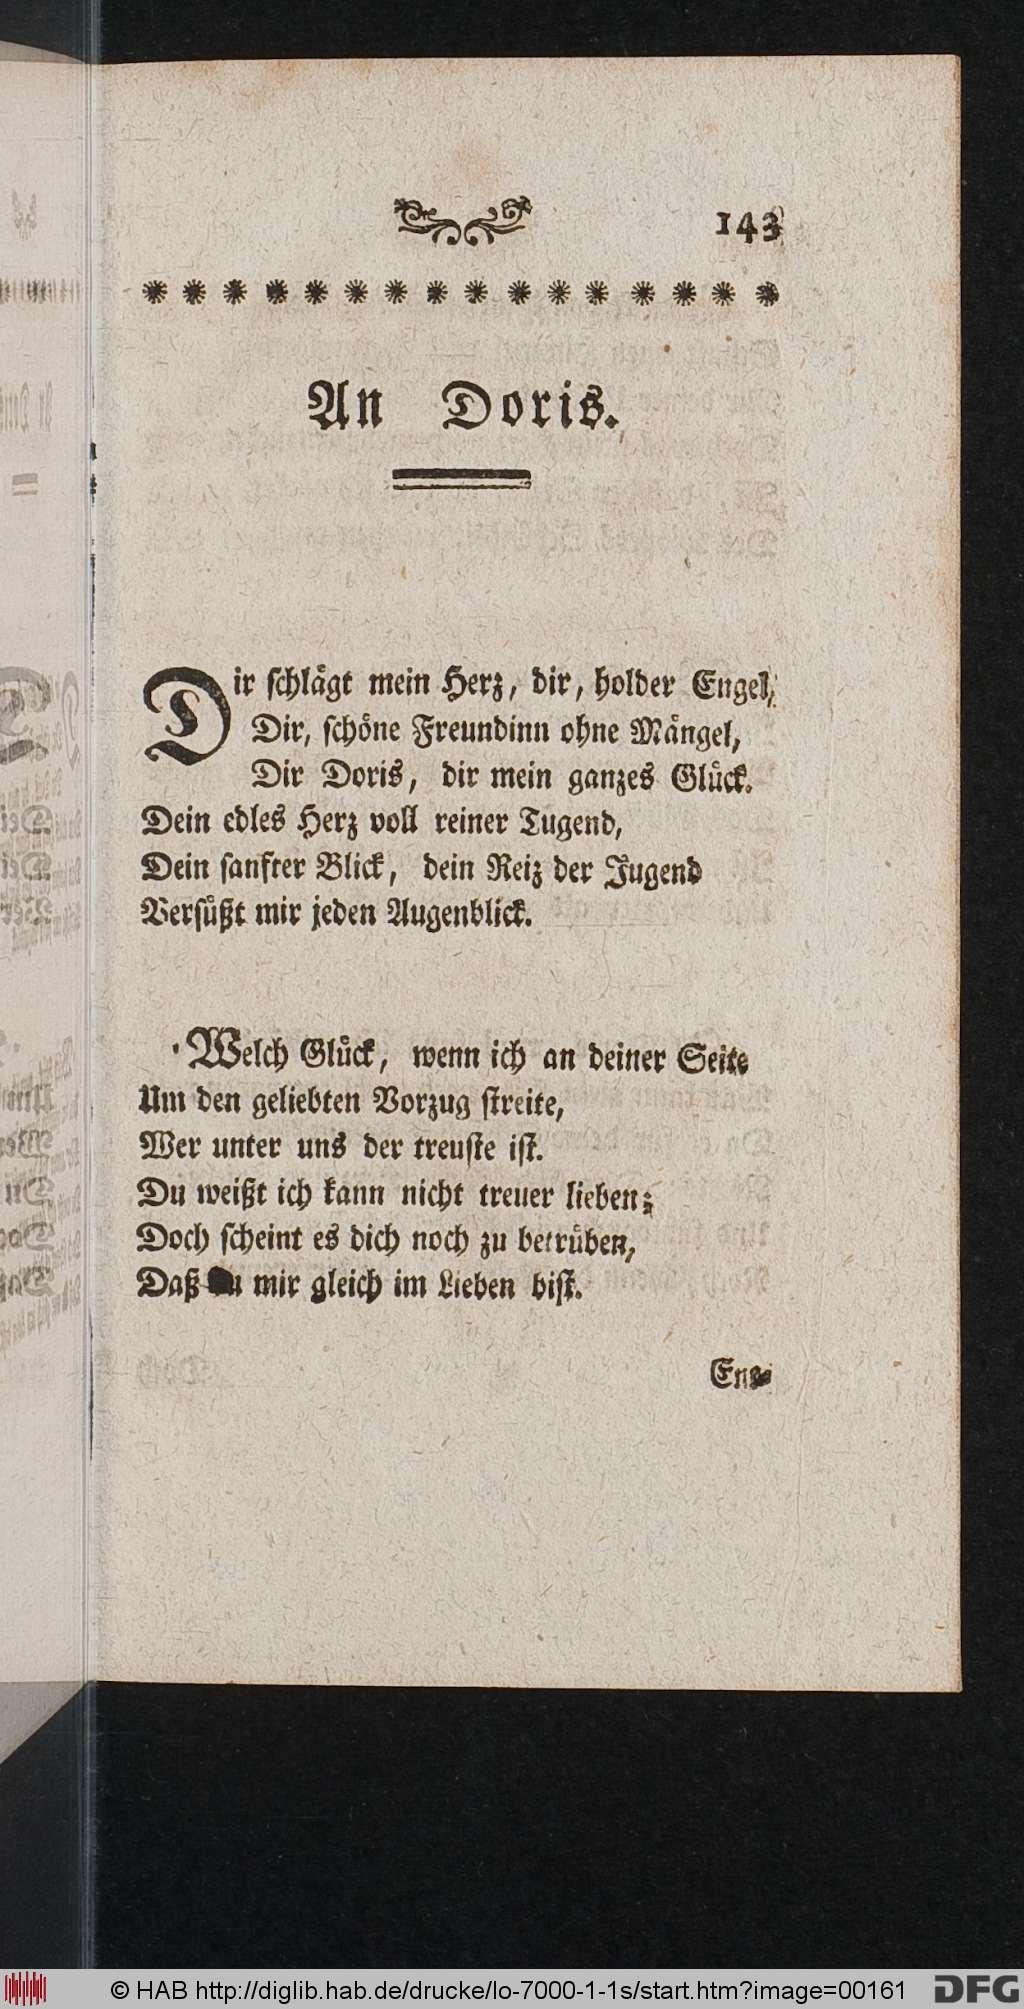 143
An Doris.
Dir schlägt mein Herz, dir, holder Engel,
Dir, schöne Freundinn ohne Mängel,
Dir Doris, dir mein ganzes Glück.
Dein edles Herz voll reiner Tugend,
Dein sanfter Blick, dein Reiz der Jugend
Versüßt mir jeden Augenblick.
Welch Glück, wenn ich an deiner Seite
Um den geliebten Vorzug streite,
Wer unter uns der treuste ist.
Du weißt ich kann nicht treuer lieben;
Doch scheint es dich noch zu betrüben,
Daß du mir gleich im Lieben bist.
© HAB http://diglib.hab.de/drucke/lo-7000-1-1s/start.htm?image=00161
DFG